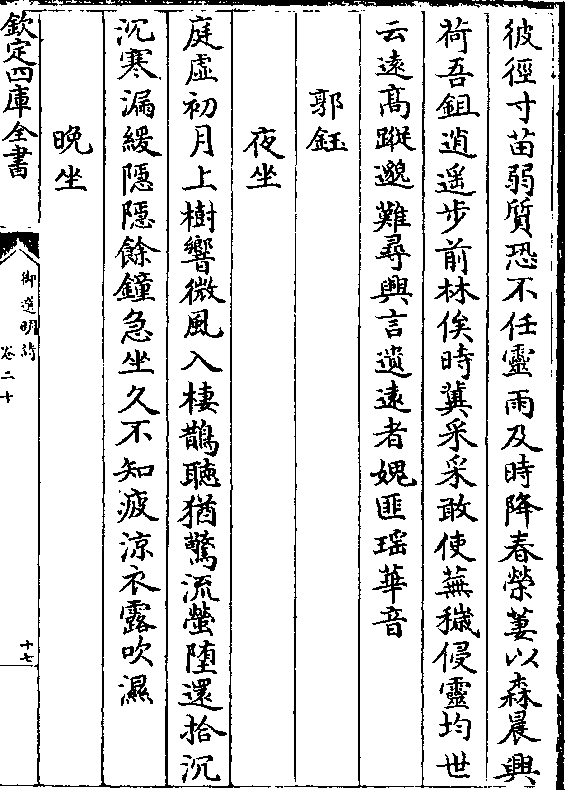 彼徑寸苗弱質恐不任靈雨及時降春榮萋以森晨興
荷吾鉏逍遥步前林俟時冀采采敢使蕪穢侵靈均世
云遠高蹤邈難尋興言遺遠者媿匪瑶華音
郭鈺
夜坐
庭虛初月上樹響微風入棲鵲聴猶驚流螢堕還拾沉
沉寒漏緩隱隱餘鐘急坐久不知疲涼衣露吹濕
晩坐
欽定四庫全書
御選明詩
卷二十
十七